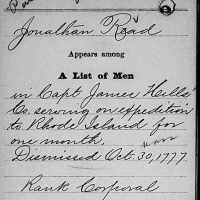 Jonathan Read
Appears among
A List of Men
in Capt James Hills'
Co. serving on expedition
to Rhode Island for
one month.
Dismissed Oct. 30, 1777.
Rank Corporal